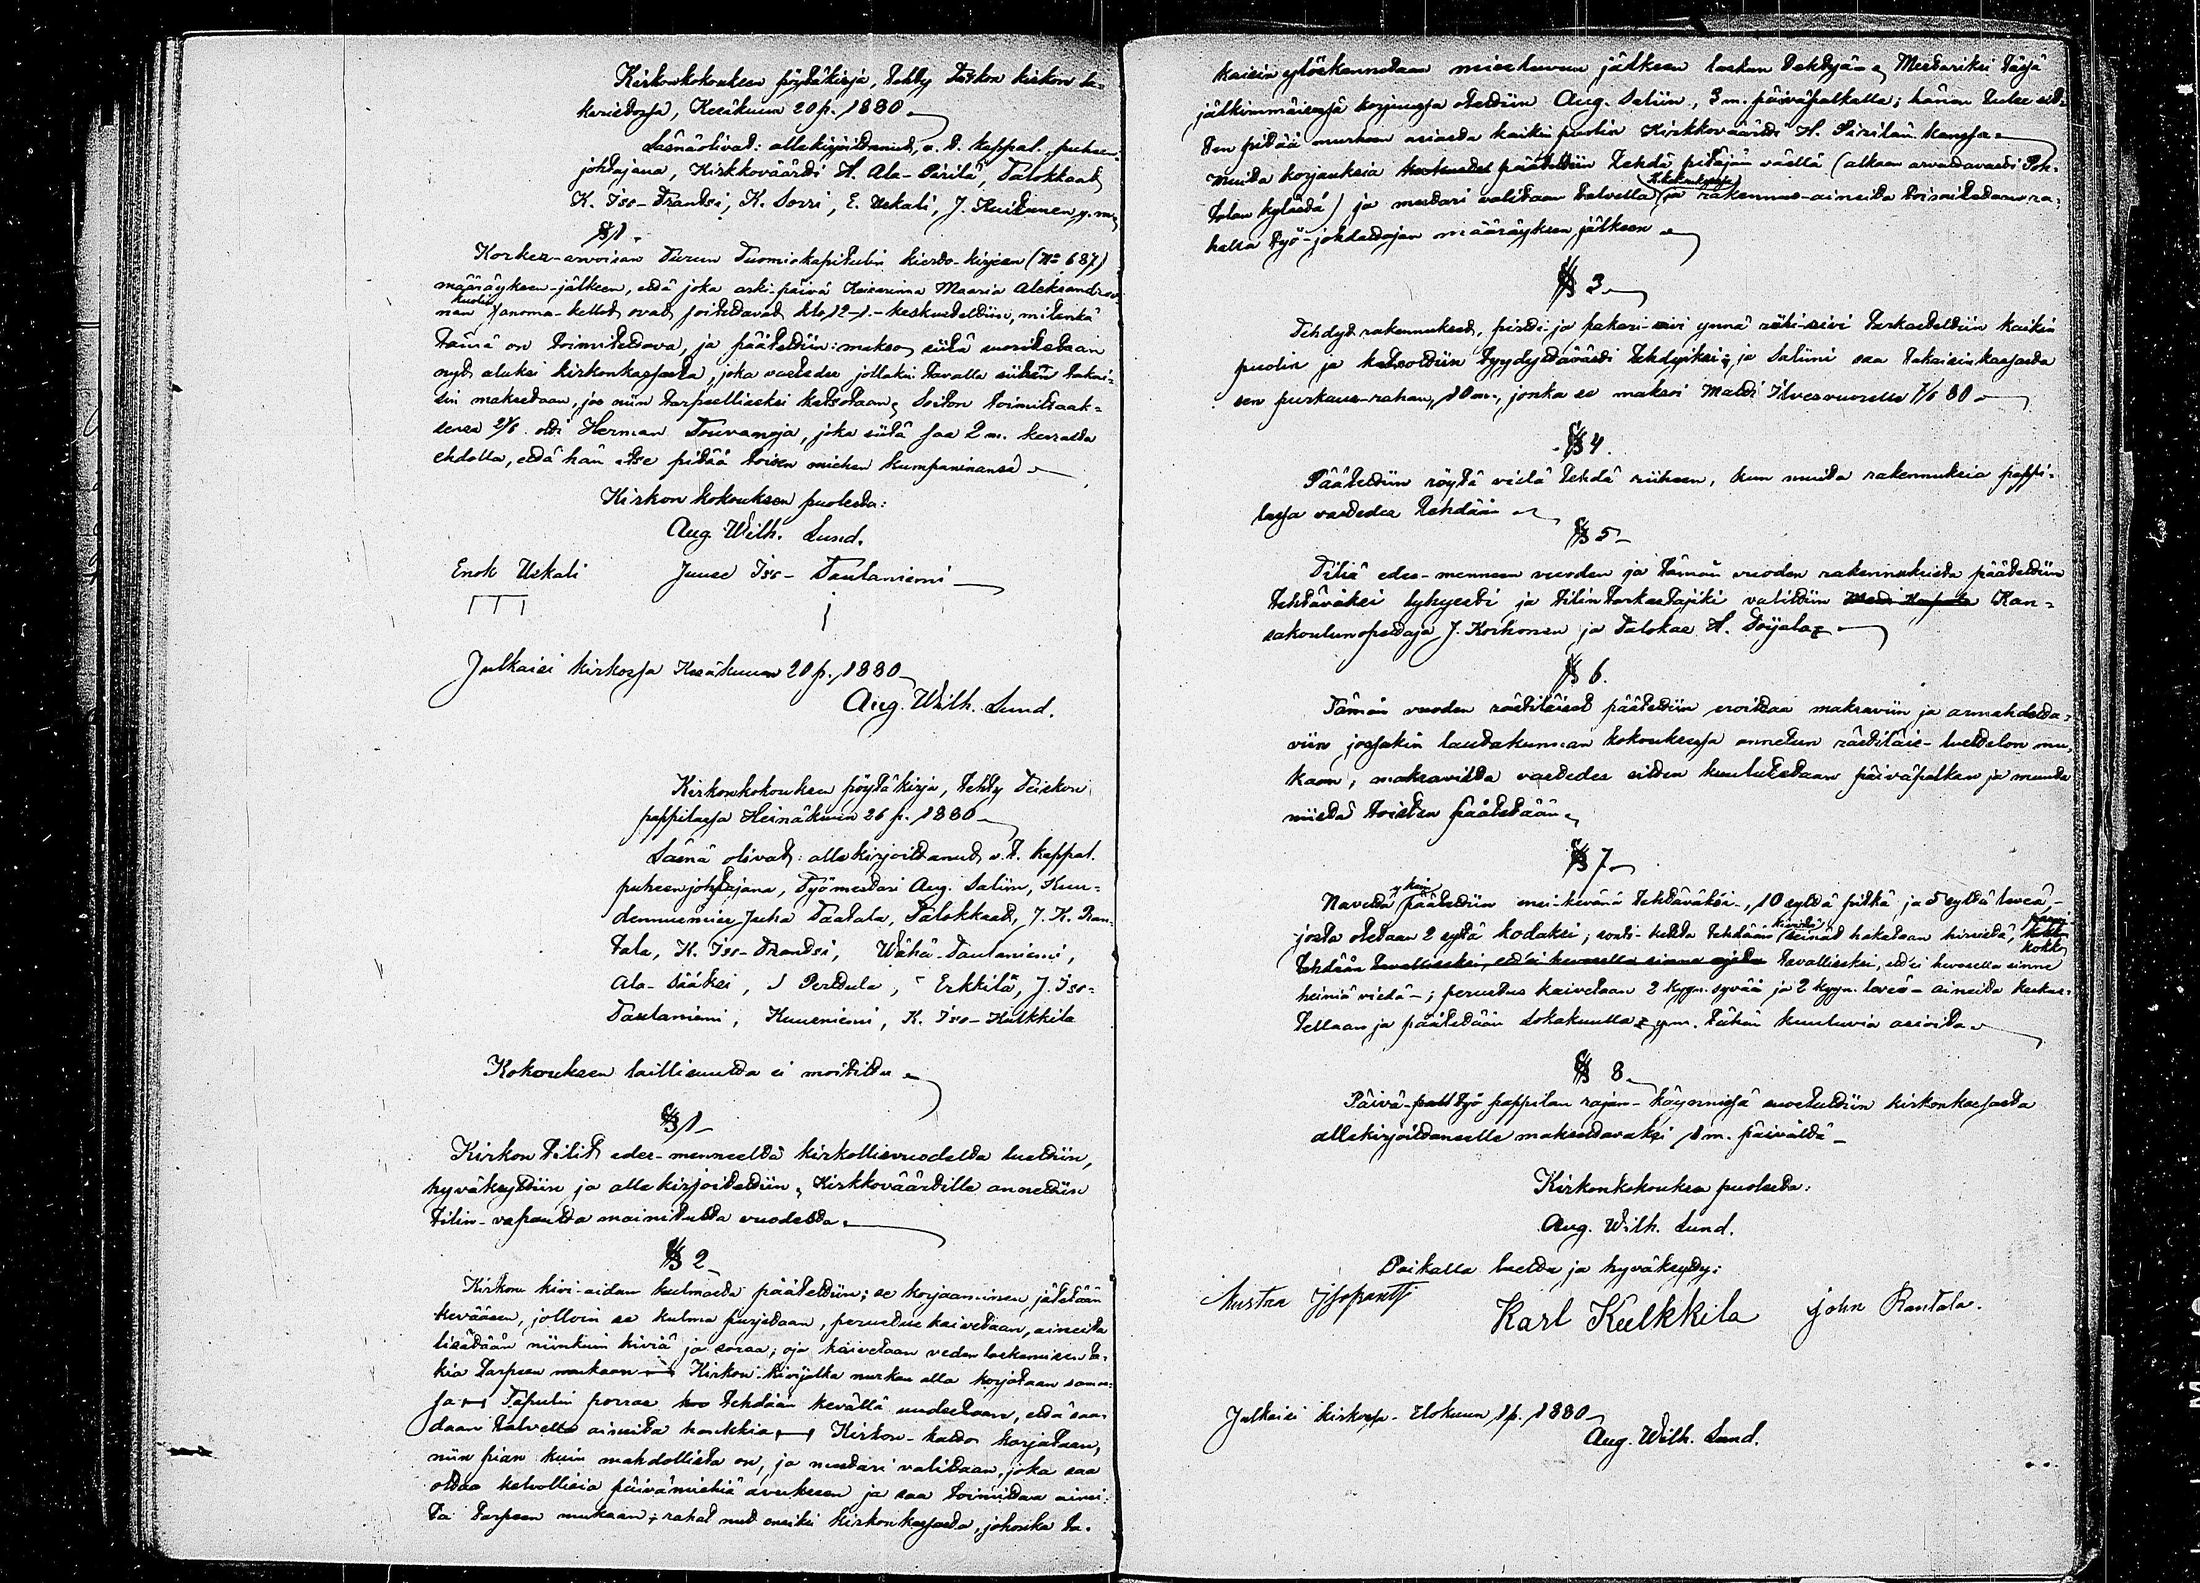 Kirkonkokouksen pöytäkirja, tehty Teiskon kirkon sa-
karistossa, Kesäkuun 20 p. 1880
Läsnä olivat: allekirjoittanut, v. t. kappal. puheen-
johtajana, Kirkkoväärdi H. Ala-Pirilä, Talokkaat
K. Iso-Frantsi, K. Sorri, E. Uskali, J. Ruitunen y. m.
§ 1.
Korkea-arvoisan Turun Tuomiokapitulin kierto-kirjeen (No 687)
määräyksen-jälkeen, että joka arki-päivä Keisarinna Maaria Aleksandrow-
nan kuolin sanoma-kellot ovat soitettavat klo 12-1.- keskusteltiin, mitenkä
tämä on toimitettava, ja päätettiin: makso siitä suoritetaan
nyt aluksi kirkonkassasta, joka vastedes jollakin tavalla siihen takai-
sin maksetaan, jos niin tarpeelliseksi katsotaan. Soiton toimittaak-
sensa 21/6 otti Herman Touvanoja, joka siitä saa 2 m. kerralta
ehdolla, että hän itse pitää toisen miehen kumpaninansa
Kirkon kokouksen puolesta:
Aug. Wilh. Lund.
Enok Uskali Juuse Iso-Tautaniemi
Julkaisi kirkossa Kesäkuun 20 p. 1880
Aug. Wilh. Lund.
Kirkonkokouksen pöytäkirja, tehty Teiskon
pappilassa Heinäkuun 26 p. 1880
Läsnä olivat: allekirjoittanut v. t. kappal.
puheenjohtajana, Työmestari Aug. Saliin, Kuu-
dennusmies Juha Taatala, Talokkaat, J. K. Ran-
tala, K. Iso-Frantsi, Wähä-Tautaniemi,
Ala-Sääksi, J Perttula, Erkkilä, J. Iso-
Tautaniemi, Kuusniemi, K. Iso-Kulkkila
Kokouksen laillisuutta ei moitittu
§ 1
Kirkon tilit edes-menneeltä kirkollisvuodelta luettiin,
hyväksyttiin ja allekirjoitettiin. Kirkkoväärdille annettiin
tilin-vapautta mainitulta vuodelta.
§ 2
Kirkon kivi-aidan kulmasta päätettiin; se korjaaminen jätetään
kevääsen, jolloin se kulma purjetaan, perustus kaivetaan, aineita
lisätään niinkuin kiviä ja soraa; oja kaivetaan veden laskemisen ta-
kia tarpeen mukaan Kirkon kivijalka nurkan alla korjataan samas-
sa Tapulin porras koo tehdään kevällä uudestaan, että saa-
daan talvella aineita hankkia Kirkon-katto korjataan,
niin pian kuin mahdollista on, ja mestari valitaan, joka saa
ottaa kelvollisia päivämiehiä avuksen ja saa toimittaa ainei-
ta tarpeen mukaan; rahat nut ensiksi kirkonkassasta, johonka ta-
kaisin ylöskannetaan miesluvun jälkeen laskun tehtyä. Mestariksi tässä
jälkimmäisessä korjuussa otettiin Aug. Saliin, 3 m. päiväpalkalla; hänen tulee sit-
ten pitää murheen asiasta kaikin puolin Kirkkoväärdi H. Pirilän kanssa.
Muita korjauksia päätettiin tehdä pitäjän väellä (alkaen arvattavasti Poh-
tolan kylästä) ja mestari valitaan talvella K. kokouksessa ja rakennus-aineita toimitetaan ra-
halla työ-johdattajan määräyksen jälkeen
§ 3
Tehdyt rakennukset, pirtti- ja pakari-sivi ynnä riihi-sivi tarkasteltiin kaikin
puolin ja katsottiin tyydyttävästi tehdyiksi; ja Saliini saa takaisin kassasta
sen purkaus-rahan, 10 m., jonka se maksoi Matti Ilvesvuorelle 7/6 80
§ 4.
Päätettiin röytä vielä tehdä riiheen, kun muita rakennuksia pappi-
lassa vastedes tehdään
§ 5
Tiliä edes-menneen vuoden ja tämän vuoden rakennuksista päätettiin
tehtäväksi lyhyesti ja tilin tarkastajiksi valittiin Kan-
sakoulunopettaja J. Korhonen ja Talokas H. Toijala.
§ 6.
Tämän vuoden rästiläiset päätettiin eroittaa maksaviin ja armahdetta-
viin jossakin lautakunnan kokouksessa annetun rästiläis-luettelon mu-
kaan, maksavilta vastedes sitten kuulutetaan päiväpalkan ja muuta
niistä toisten päätetään.
§ 7
Navetta ykin päätettiin ensi-kevänä tehtäväksi, 10 syltä pitkä ja 5 syltä leveä,
josta otetaan 2 syltä kodaksi; sonti-hauta tehdään kivestä seinät hakataan hirsistä, parvi-
kokk
tehdään tavalliseksi, että ei hevosella sinne ajeta tavalliseksi, ett'ei hevosella sinne
heiniä viedä; perustus kaivetaan 2 kyyn. syvää ja 2 kyyn. leveä - aineita keskus-
tellaan ja päätetään Lokakuulla y. m. tähän kuuluvia asioita.
§ 8
Päivä-palk työ pappilan rajan-käynnissä suostuttiin kirkonkassasta
allekirjoittaneelle maksettavaksi 1 m. päivältä
Kirkonkokouksen puolesta:
Aug. Wilh. Lund.
Paikalla luettu ja hyväksytty:
Kustaa Isofrantti Karl Kulkkila John Rantala.
Julkaisi kirkossa Elokuun 1 p. 1880
Aug. Wilh. Lund.